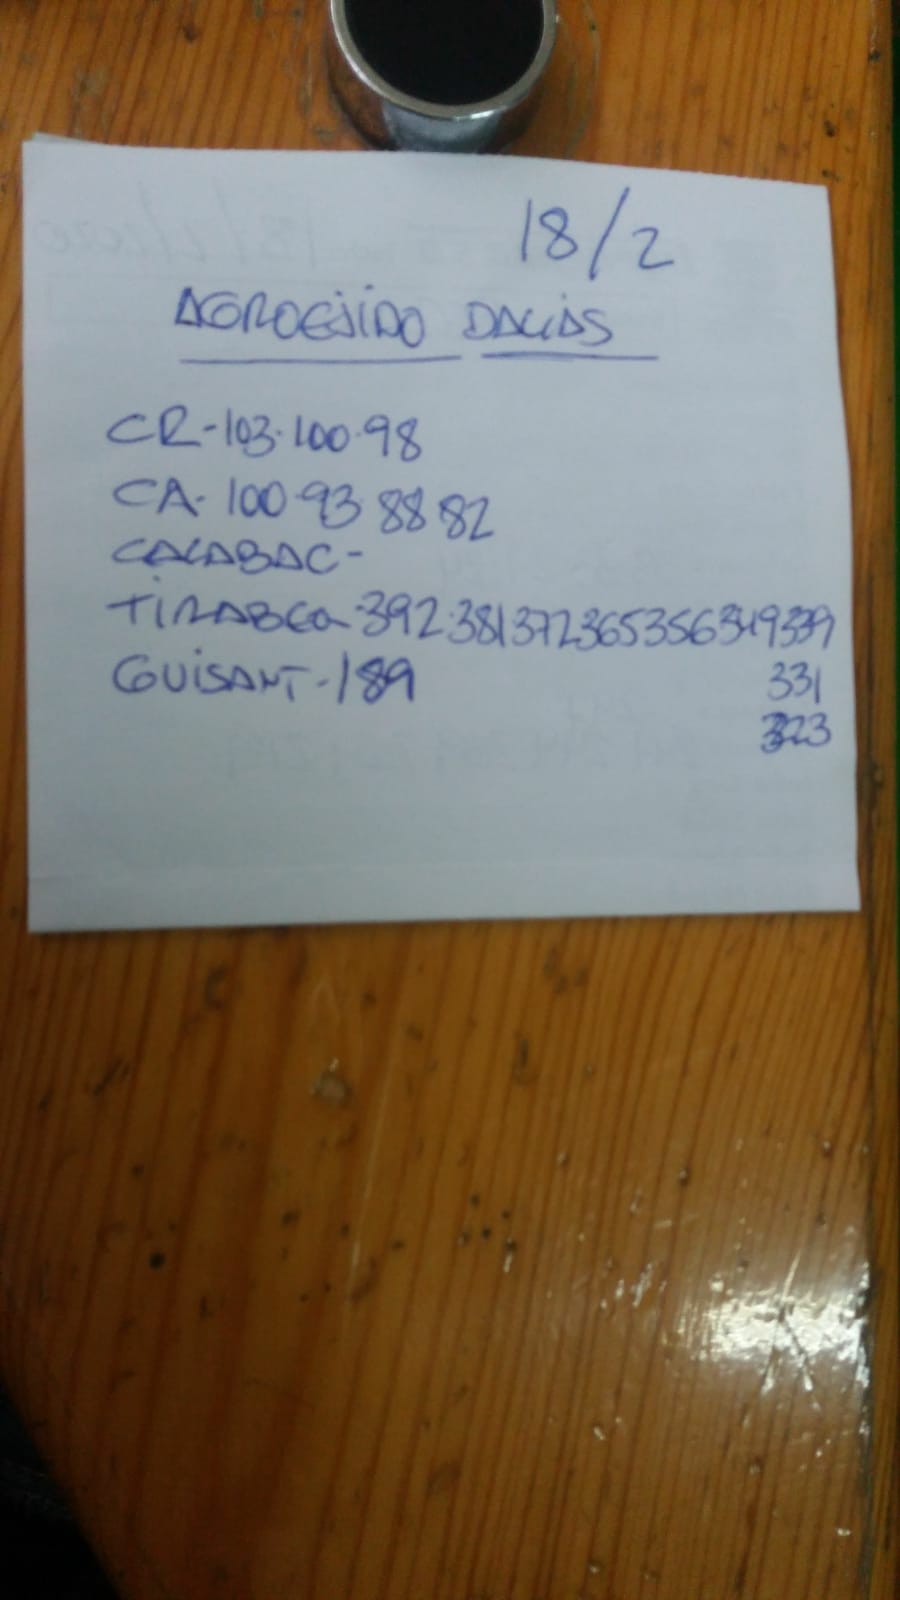 18/2
AGROEJIDO DALIAS
CR-103·100·98
CA-100·93 88 82
CALABAC-
TIRABEQ-392·381 372 365 356 349 339
GUISANT-189 331
323